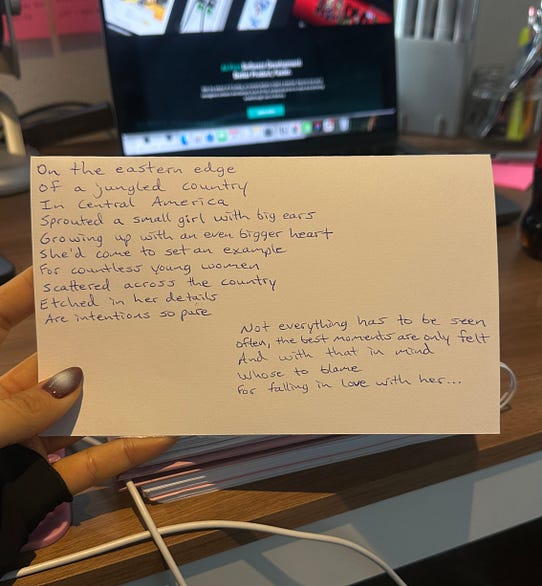 On the eastern edge
of a jungled country
In Central America
Sprouted a small girl with big ears
Growing up with an even bigger heart
She'd come to set an example
For countless young women
scattered across the country
Etched in her details
Are intentions so pure
Not everything has to be seen
often, the best moments are only felt
And with that in mind
Whose to blame
For falling in love with her...